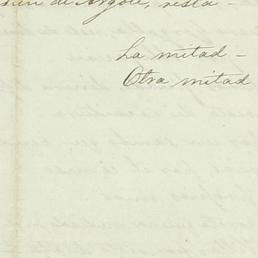 de Argote, resta -
La mitad -
Otra mitad